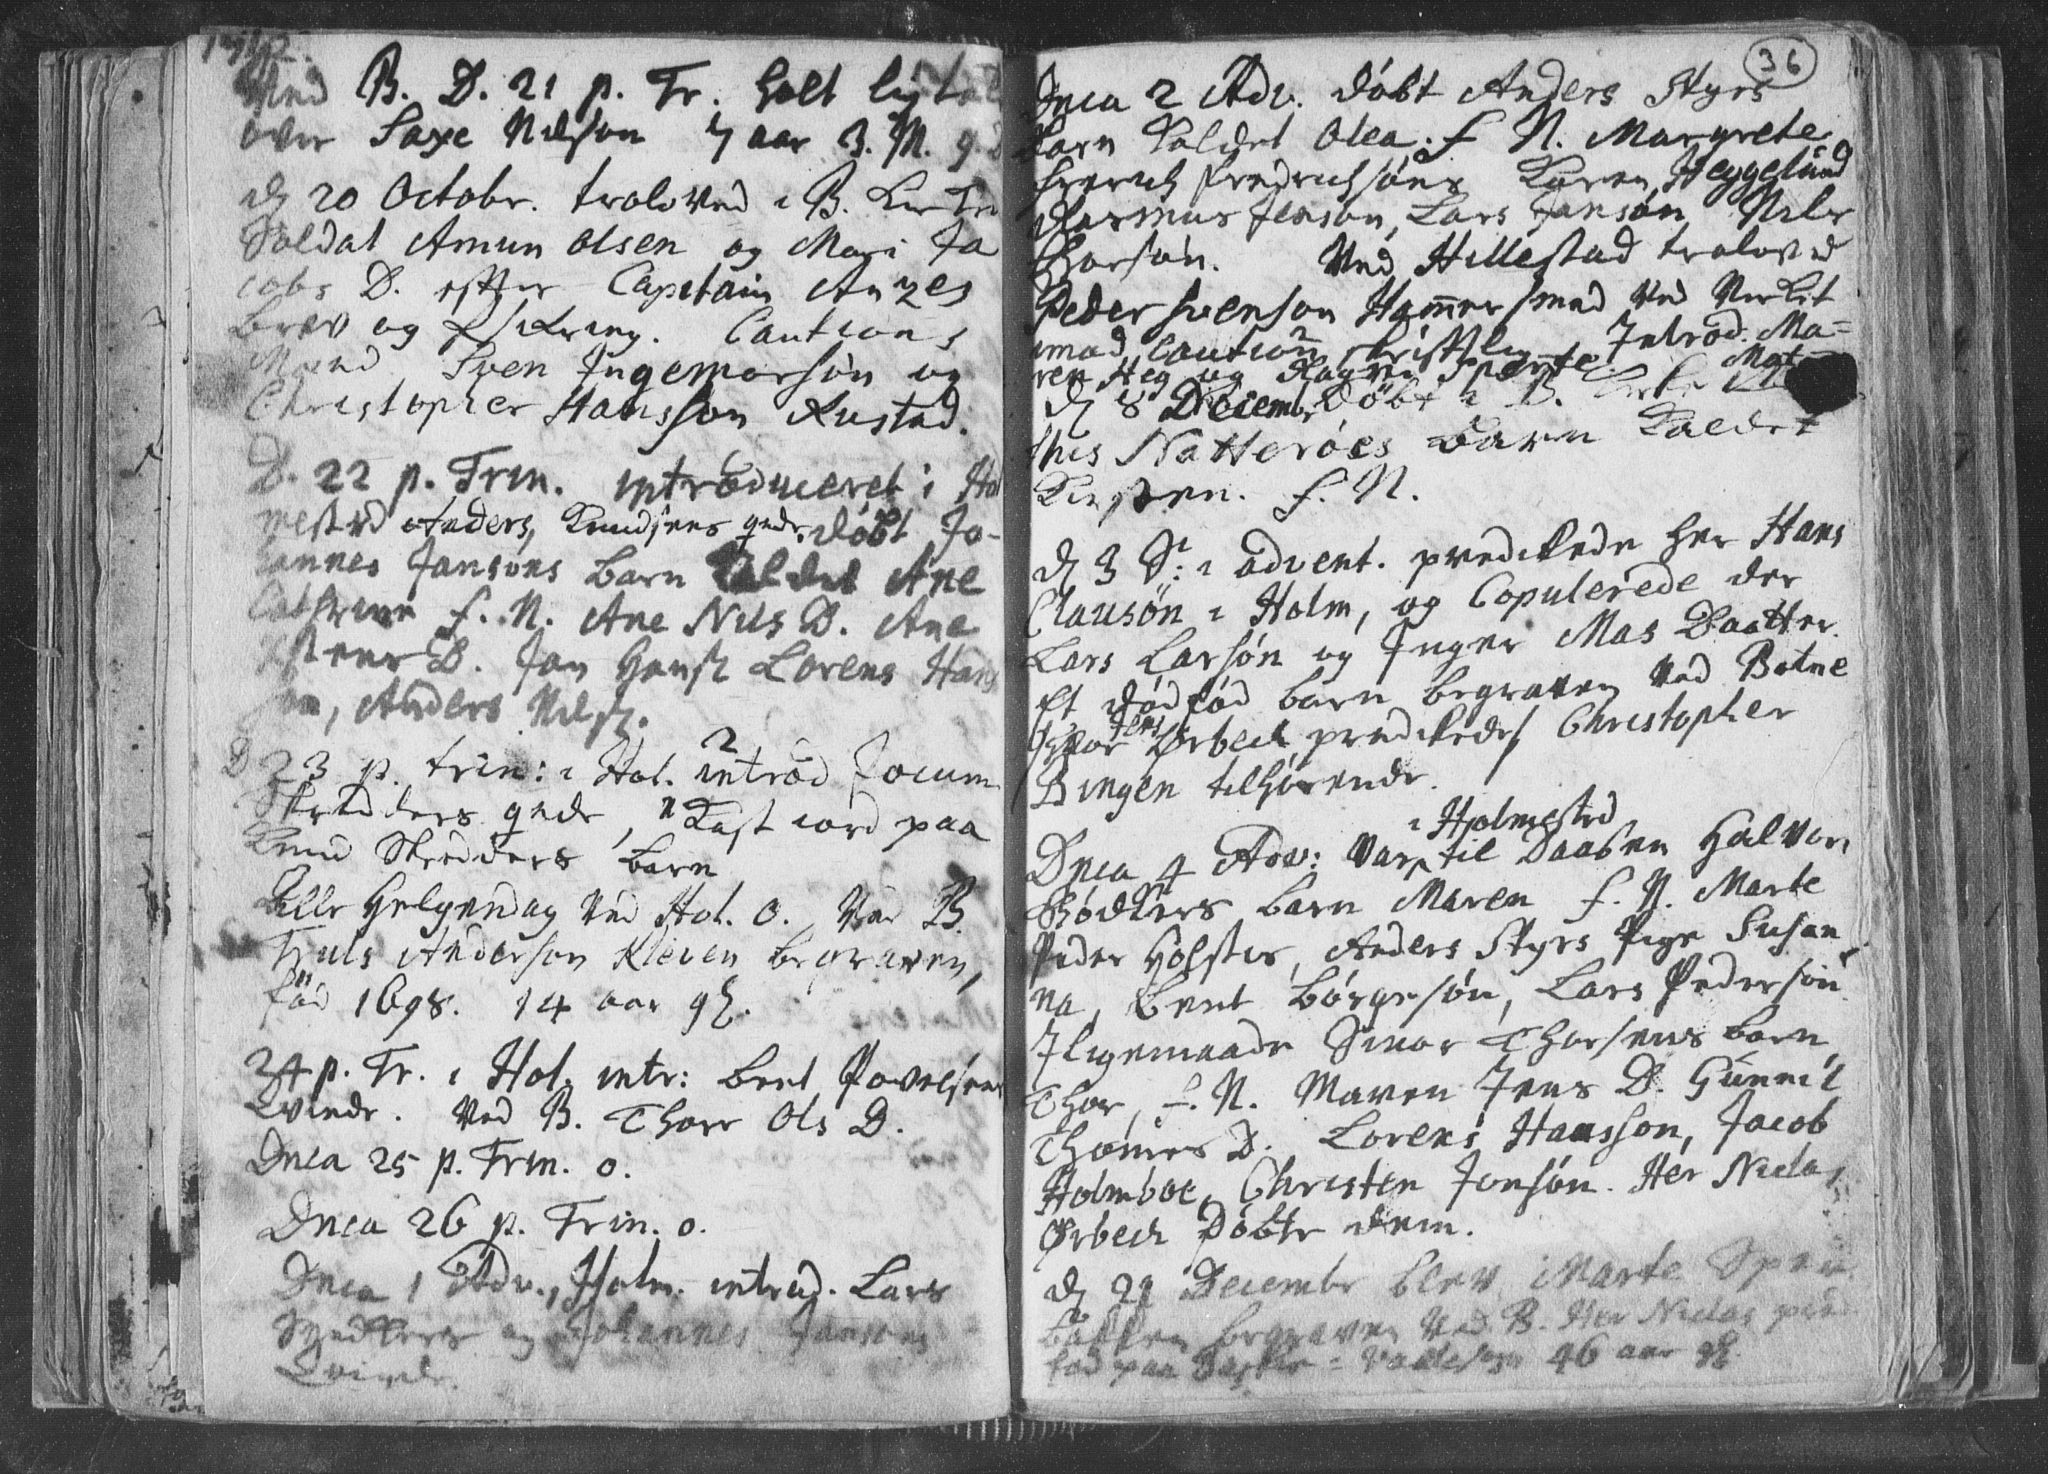 Ved B. D. 21 p. Tr. holt
over Saxe Nilson 7 aar 3. M. g.
D 20 Octobr. troloved i B. Kircke
Soldat Amun Olsen og Mari Ja
cobs D. efter Capitain Anzes
brev og Cautions
Mænd Sven Ingemorsøn og
Christopher Hansson Rustad.
D. 22 p. Trin. introduceret i Hol
mestrd Anders Knudsens qvde. døbt Jo-
hannes Jansøns barn kaldet Ane
Cathrine f. N. Ane Nils D. Ane
D. Jan Hensen Lorens Hans
søn, Anders Nils.
D 23 p. trin: i Hol. introd 2 Jocum
Skredders qvde, Kast iord paa
Knud Skredders barn
Alle Helgendag ved Hol. o. Ved B.
Truls Anderson Kleven begraven,
fød 1698. 14 aar gl.
24 p. Tr. i Hol. intr: bent Povelsens
Qvinde. Ved B. Thore Ols D.
Dnca 25 p. Trin. o.
Dnca 26 p. Trin. o.
Dnca 1 Adv., Holm. introd. Lars
og Johannes Jansens
Qvinde.
36
Dnca 2 Adv. døbt Anders Styrs
barn kaldet Olea. f N. Margrete
Fredrichsøns Karen Heggelund
Rasmus Jenson, Lars Janson Nils
Thorsøn. Ved Hillestad troloved
Peder Svenson Hammersmed ved Verket
Caution skriftlig. Introd. Ma=
ren Heg og Ragni Mat
D 8 Decembr døbt i B. Kircke
this Natterøes barn kaldet
Kirsten. f. N.
D 3 S: i advent. predikede her Hans
Clausøn i Holm, og Copulerede der
Lars Larsøn og Inger Mas Daatter.
Et dødfød barn begraven ved Botne
hvor Jens Ørbech predikede, Christopher
Bingen tilhørende.
Dnca 4 Adv: var i Holmestrd til Daaben Halvor
Bødkers barn Maren f. N. Marte
Peder Holsters, Anders Styrs Pige Susan
na, Bent Børgesøn, Lars Pedersøn
Iligemaade Simor Thorsens barn
Thor, f. N. Maren Jens D. Gunnil
Thomes D. Lorens Hansson, Jacob
Holmboe, Christen Jonsøn. Her Niclas
Ørbech døbte dem.
D 29 Decembr blev Marte
backen begraven ved B. Her Niclas
fød paa 46 aar gl.